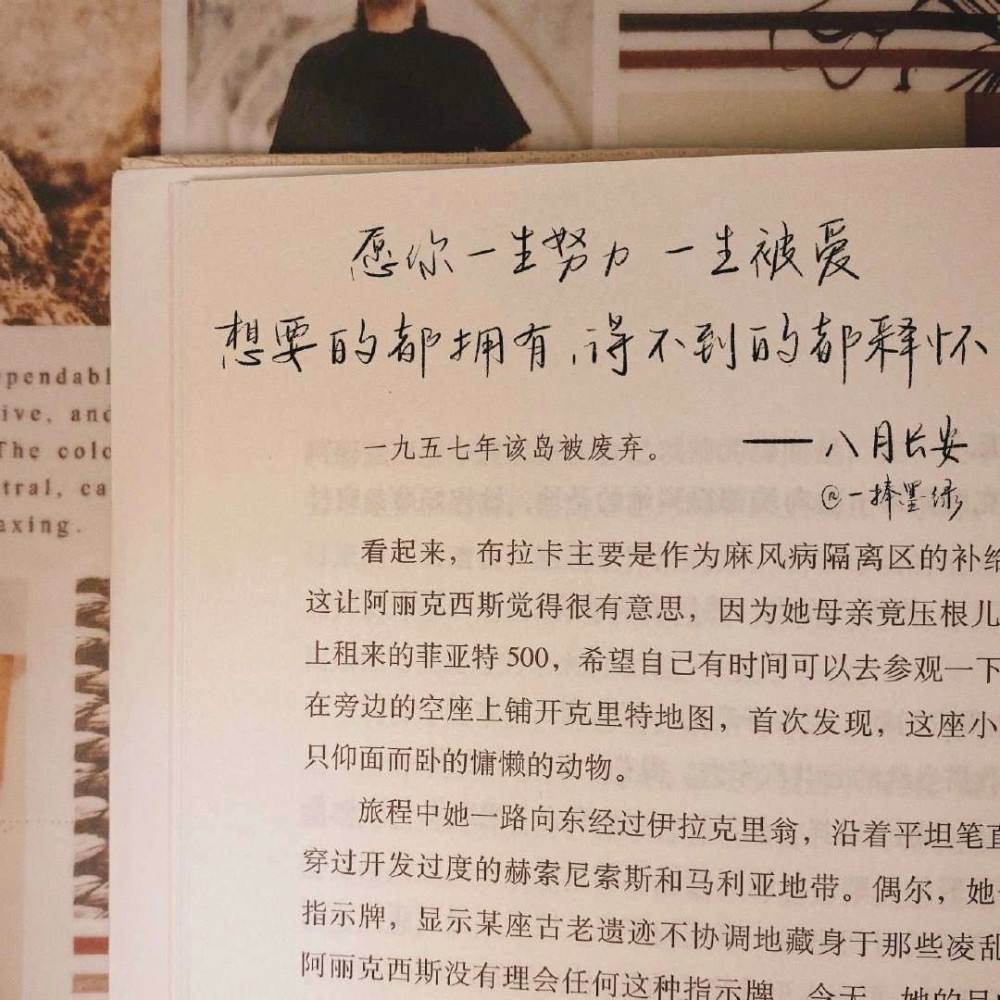 愿你一生努力 一生被爱
想要的都拥有,得不到的都释怀
一九五七年该岛被废弃。
——八月长安
@一捧墨绿
看起来，布拉卡主要是作为麻风病隔离区的补给
这让阿丽克西斯觉得很有意思，因为她母亲竟压根儿
上租来的菲亚特500，希望自己有时间可以去参观一下
在旁边的空座上铺开克里特地图，首次发现，这座小
只仰面而卧的慵懒的动物。
旅程中她一路向东经过伊拉克里翁，沿着平坦笔直
穿过开发过度的赫索尼索斯和马利亚地带。偶尔，她
指示牌，显示某座古老遗迹不协调地藏身于那些凌乱
阿丽克西斯没有理会任何这种指示牌，今天，她的目
ependabl
ive, and
The colo
tral, ca
axing.